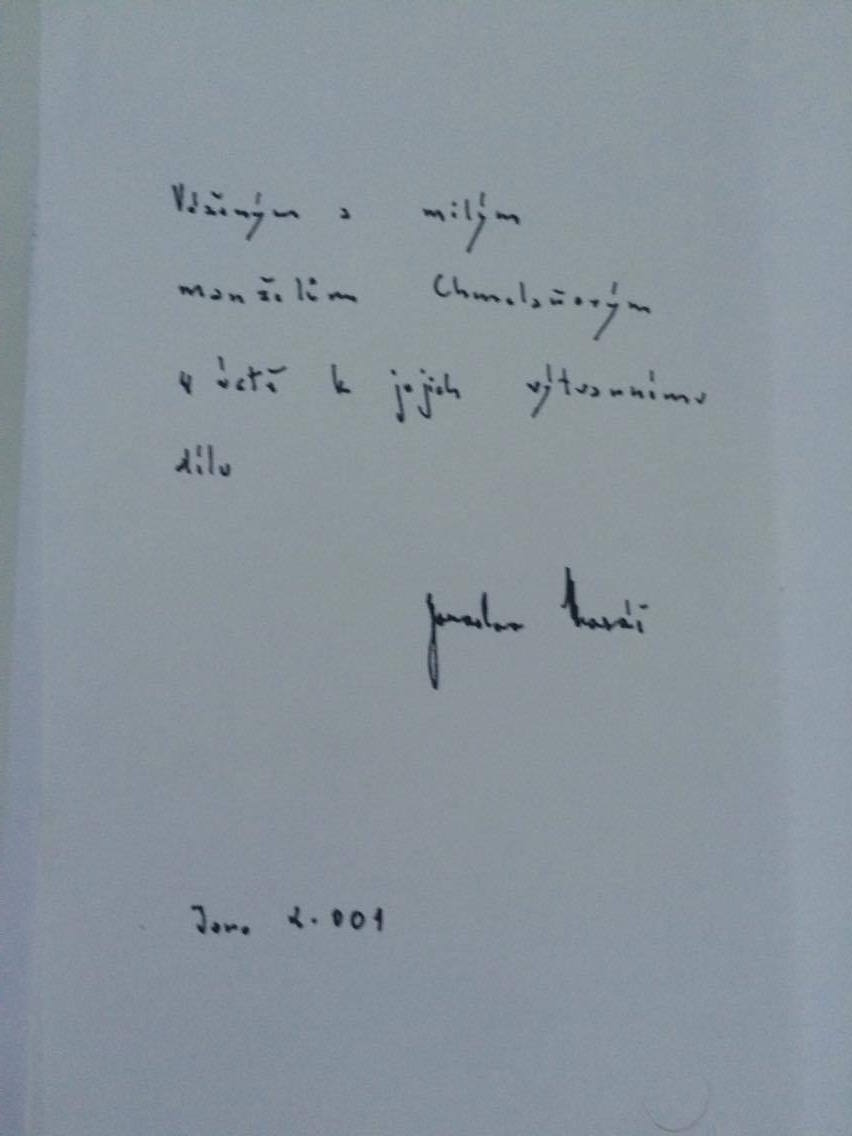 Váženým a milým
manželům Chmelařovým
v úctě k jejich výtvarnému
dílu
Jaroslav
Jaro 2.001